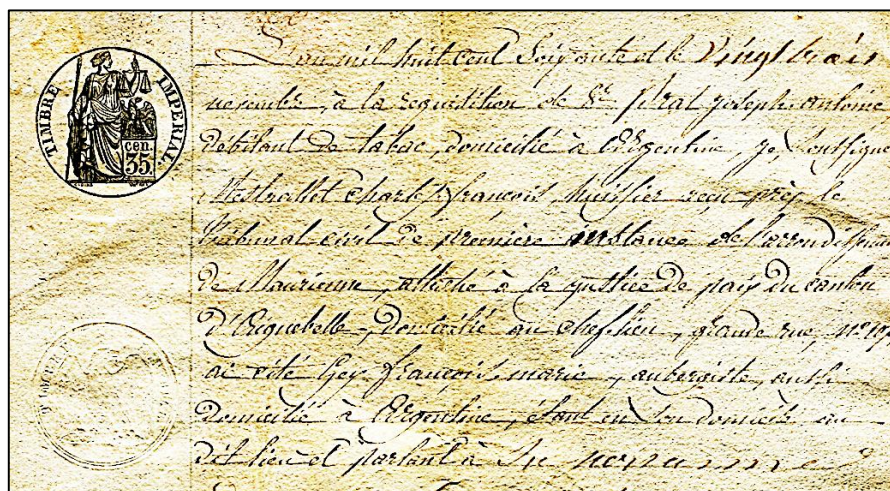 TIMBRE IMPERIAL
cen.
35.
L'an mil huit cent soixante et le vingt trois
novembre, à la requisition de Sr prat joseph antoine
débitant de tabac, domicilié à Argentine, je, soussigné
Mestrallet Charles françois, huissier reçu près le
tribunal civil de première instance de l'arrondissem
de Maurienne, attaché à la justice de paix du canton
D'Aiguebelle, domicilié au chef-lieu, grande rue, n°
ai cité Gey françois marie, aubergiste, aussi
domicilié à Argentine, étant en son domicile au
dit lieu et parlant à